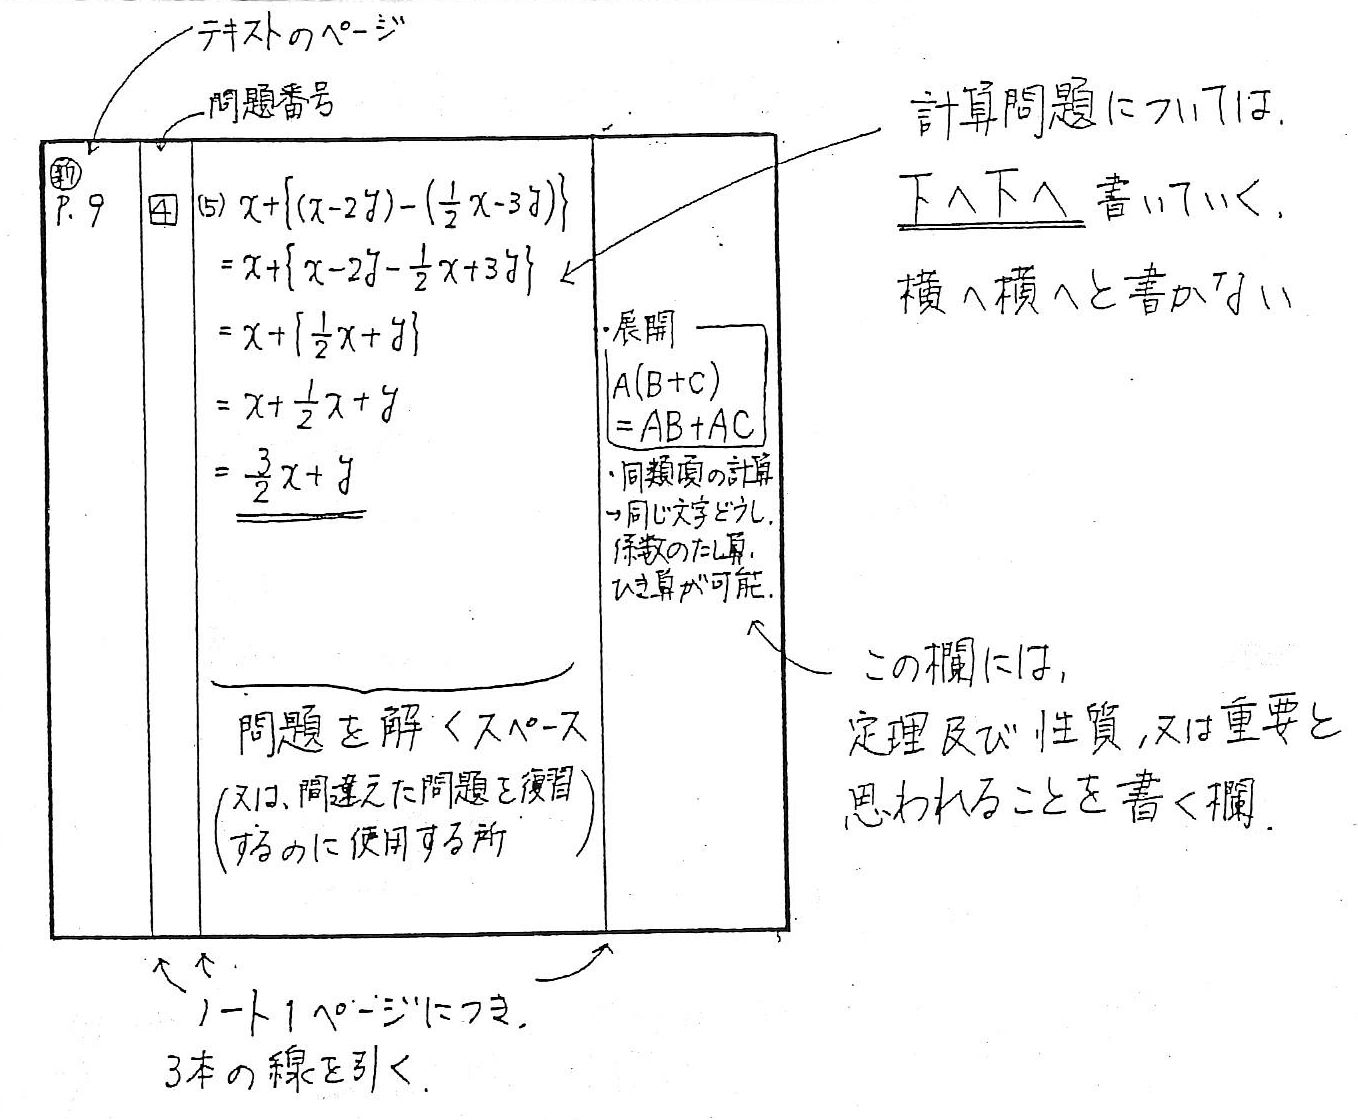 テキストのページ
問題番号
新
P. 9
4
(5) x+{(x-2y)-(1/2x-3y)}
=x+{x-2y-1/2x+3y}
=x+{1/2x+y}
=x+1/2x+y
=3/2x+y
・展開
A(B+C)
=AB+AC
・同類項の計算
→同じ文字どうし,
係数のたし算,
ひき算が可能.
問題を解くスペース
(又は、間違えた問題を復習
するのに使用する所)
計算問題については,
下へ下へ 書いていく,
横へ横へと書かない
この欄には,
定理及び性質,又は重要と
思われることを書く欄.
ノート1ページにつき,
3本の線を引く.